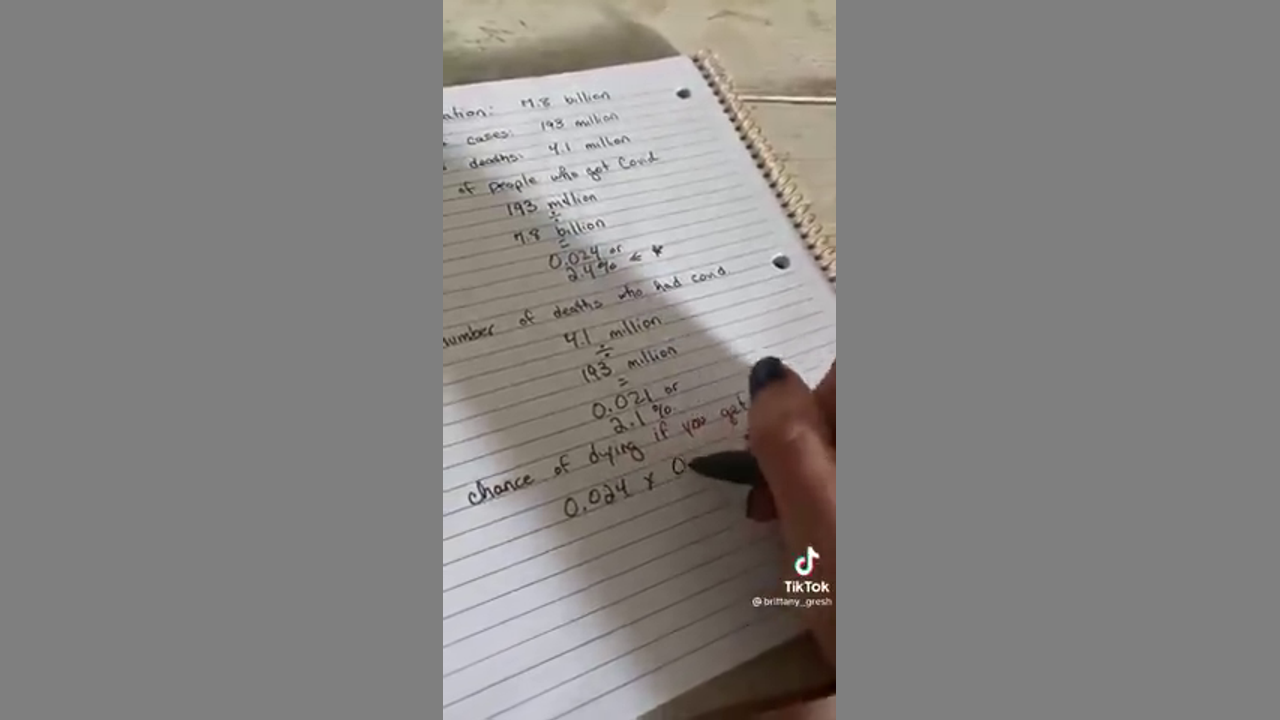 ation: 7.8 billion
cases: 193 million
deaths: 4.1 million
of people who got Covid
193 million
÷
7.8 billion
=
0.024 or
2.4% ← *
number of deaths who had covid
4.1 million
÷
193 million
=
0.021 or
2.1%
chance of dying if you get
0.024 x 0
TikTok
@brittany_gresh